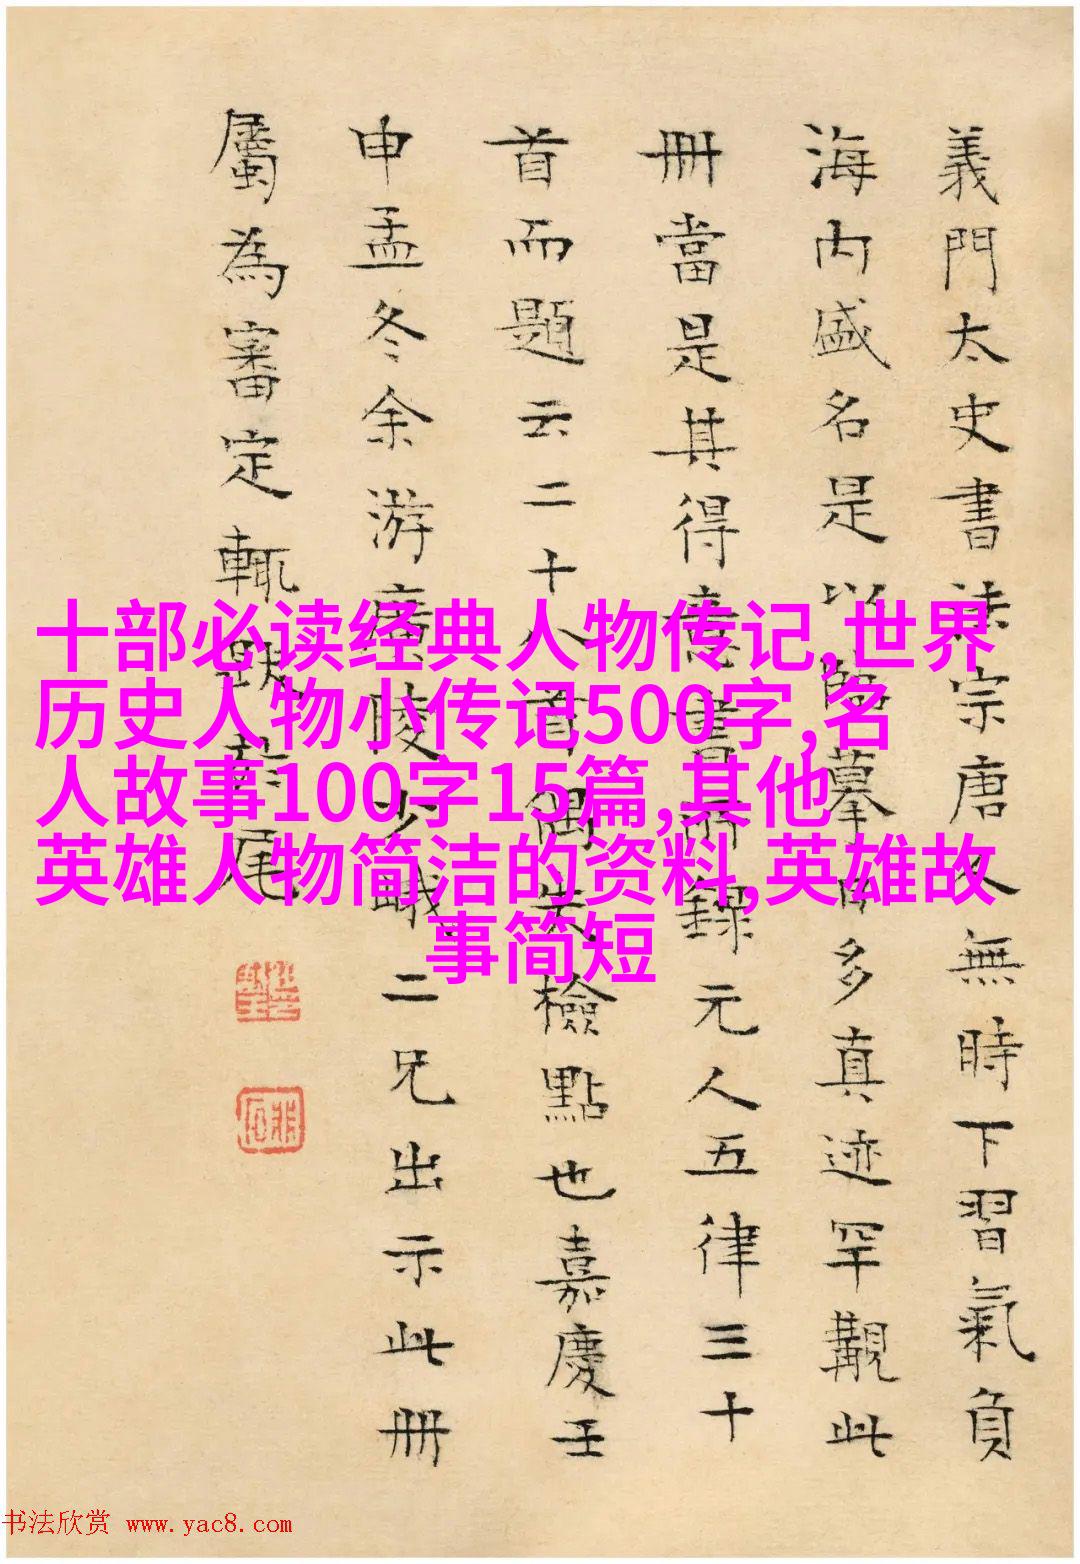 義門太史書法宗唐人無時下習氣負
海内盛名是以臨摹日多真迹罕覯此
冊當是其得意書所錄元人五律三十
首而題云二十八首偶失檢點也嘉慶壬
申孟冬余游廣陵少峨二兄出示此冊
屬為審定輒跋於尾
十部必读经典人物传记,世界
历史人物小传记500字,名
人故事100字15篇,其他
英雄人物简洁的资料,英雄故
事简短
书法欣赏 www.yac8.com